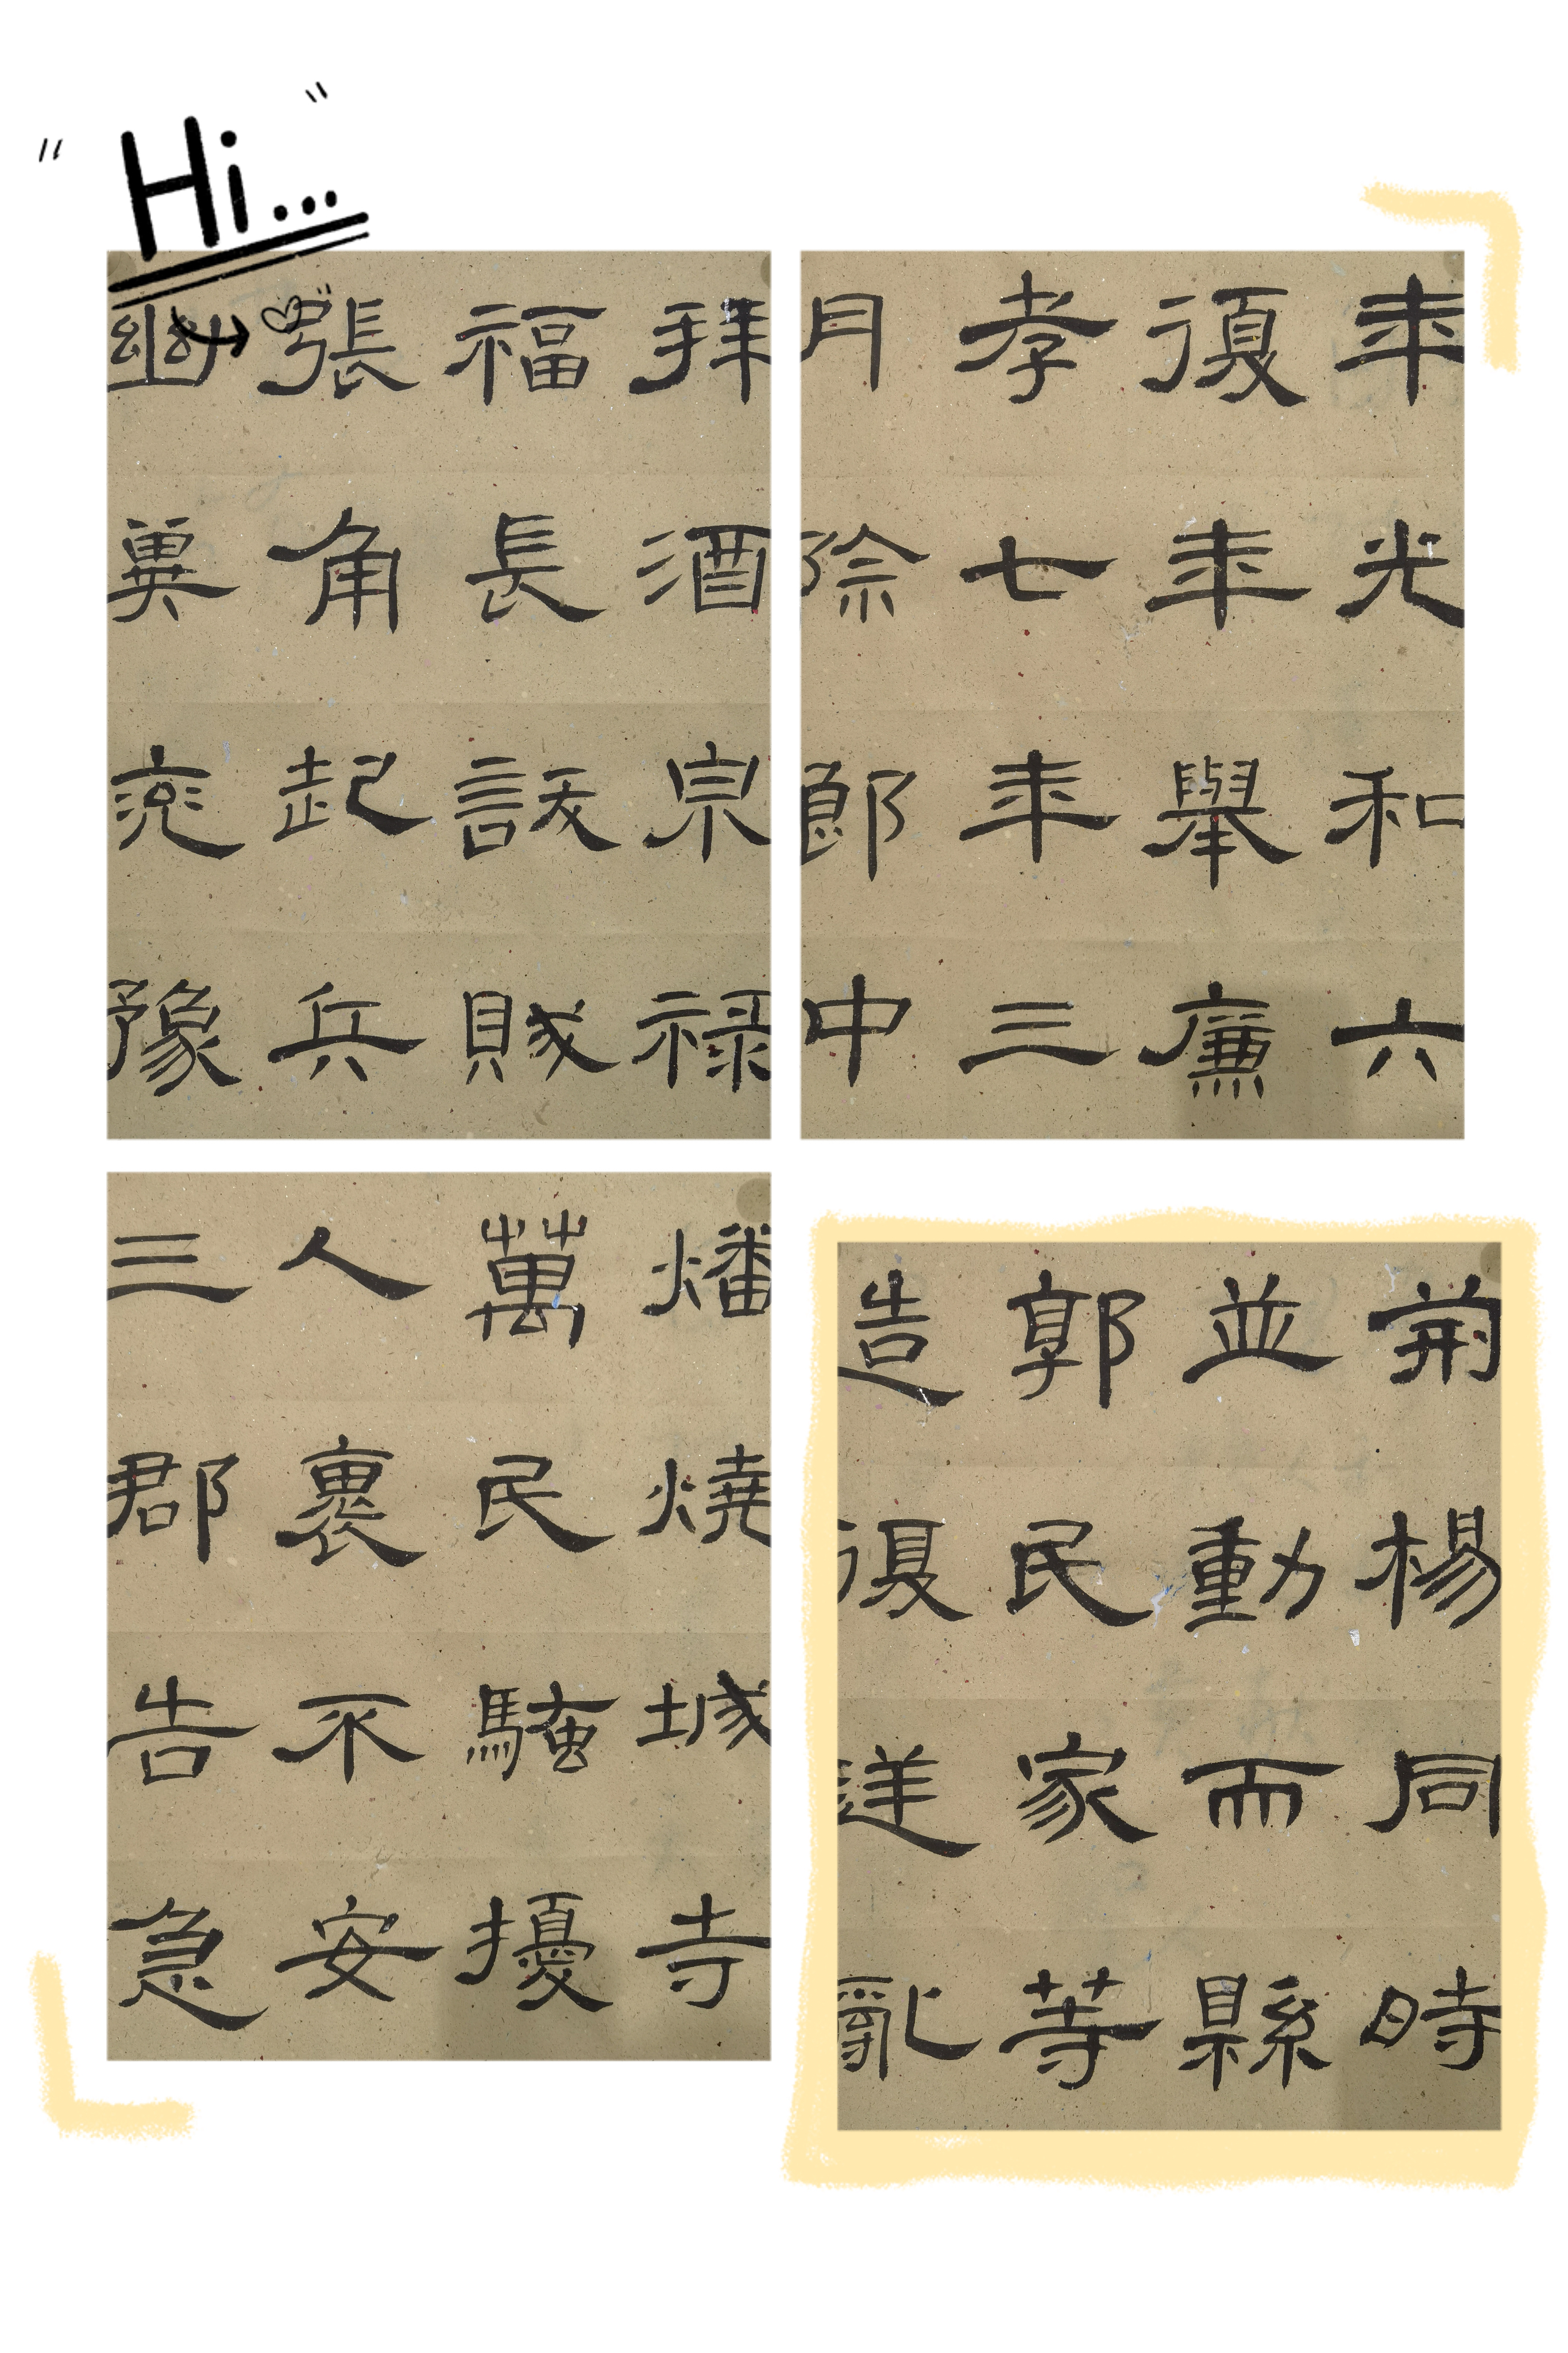 Hi...
年光和六
復年舉廉
孝七年三
月除郎中
拜酒泉祿
福長訞賊
張角起兵
幽冀兖豫
荊楊同時
並動而縣
郭民家等
造復逆亂
燔燒城寺
萬民騷擾
人褱不安
三郡告急